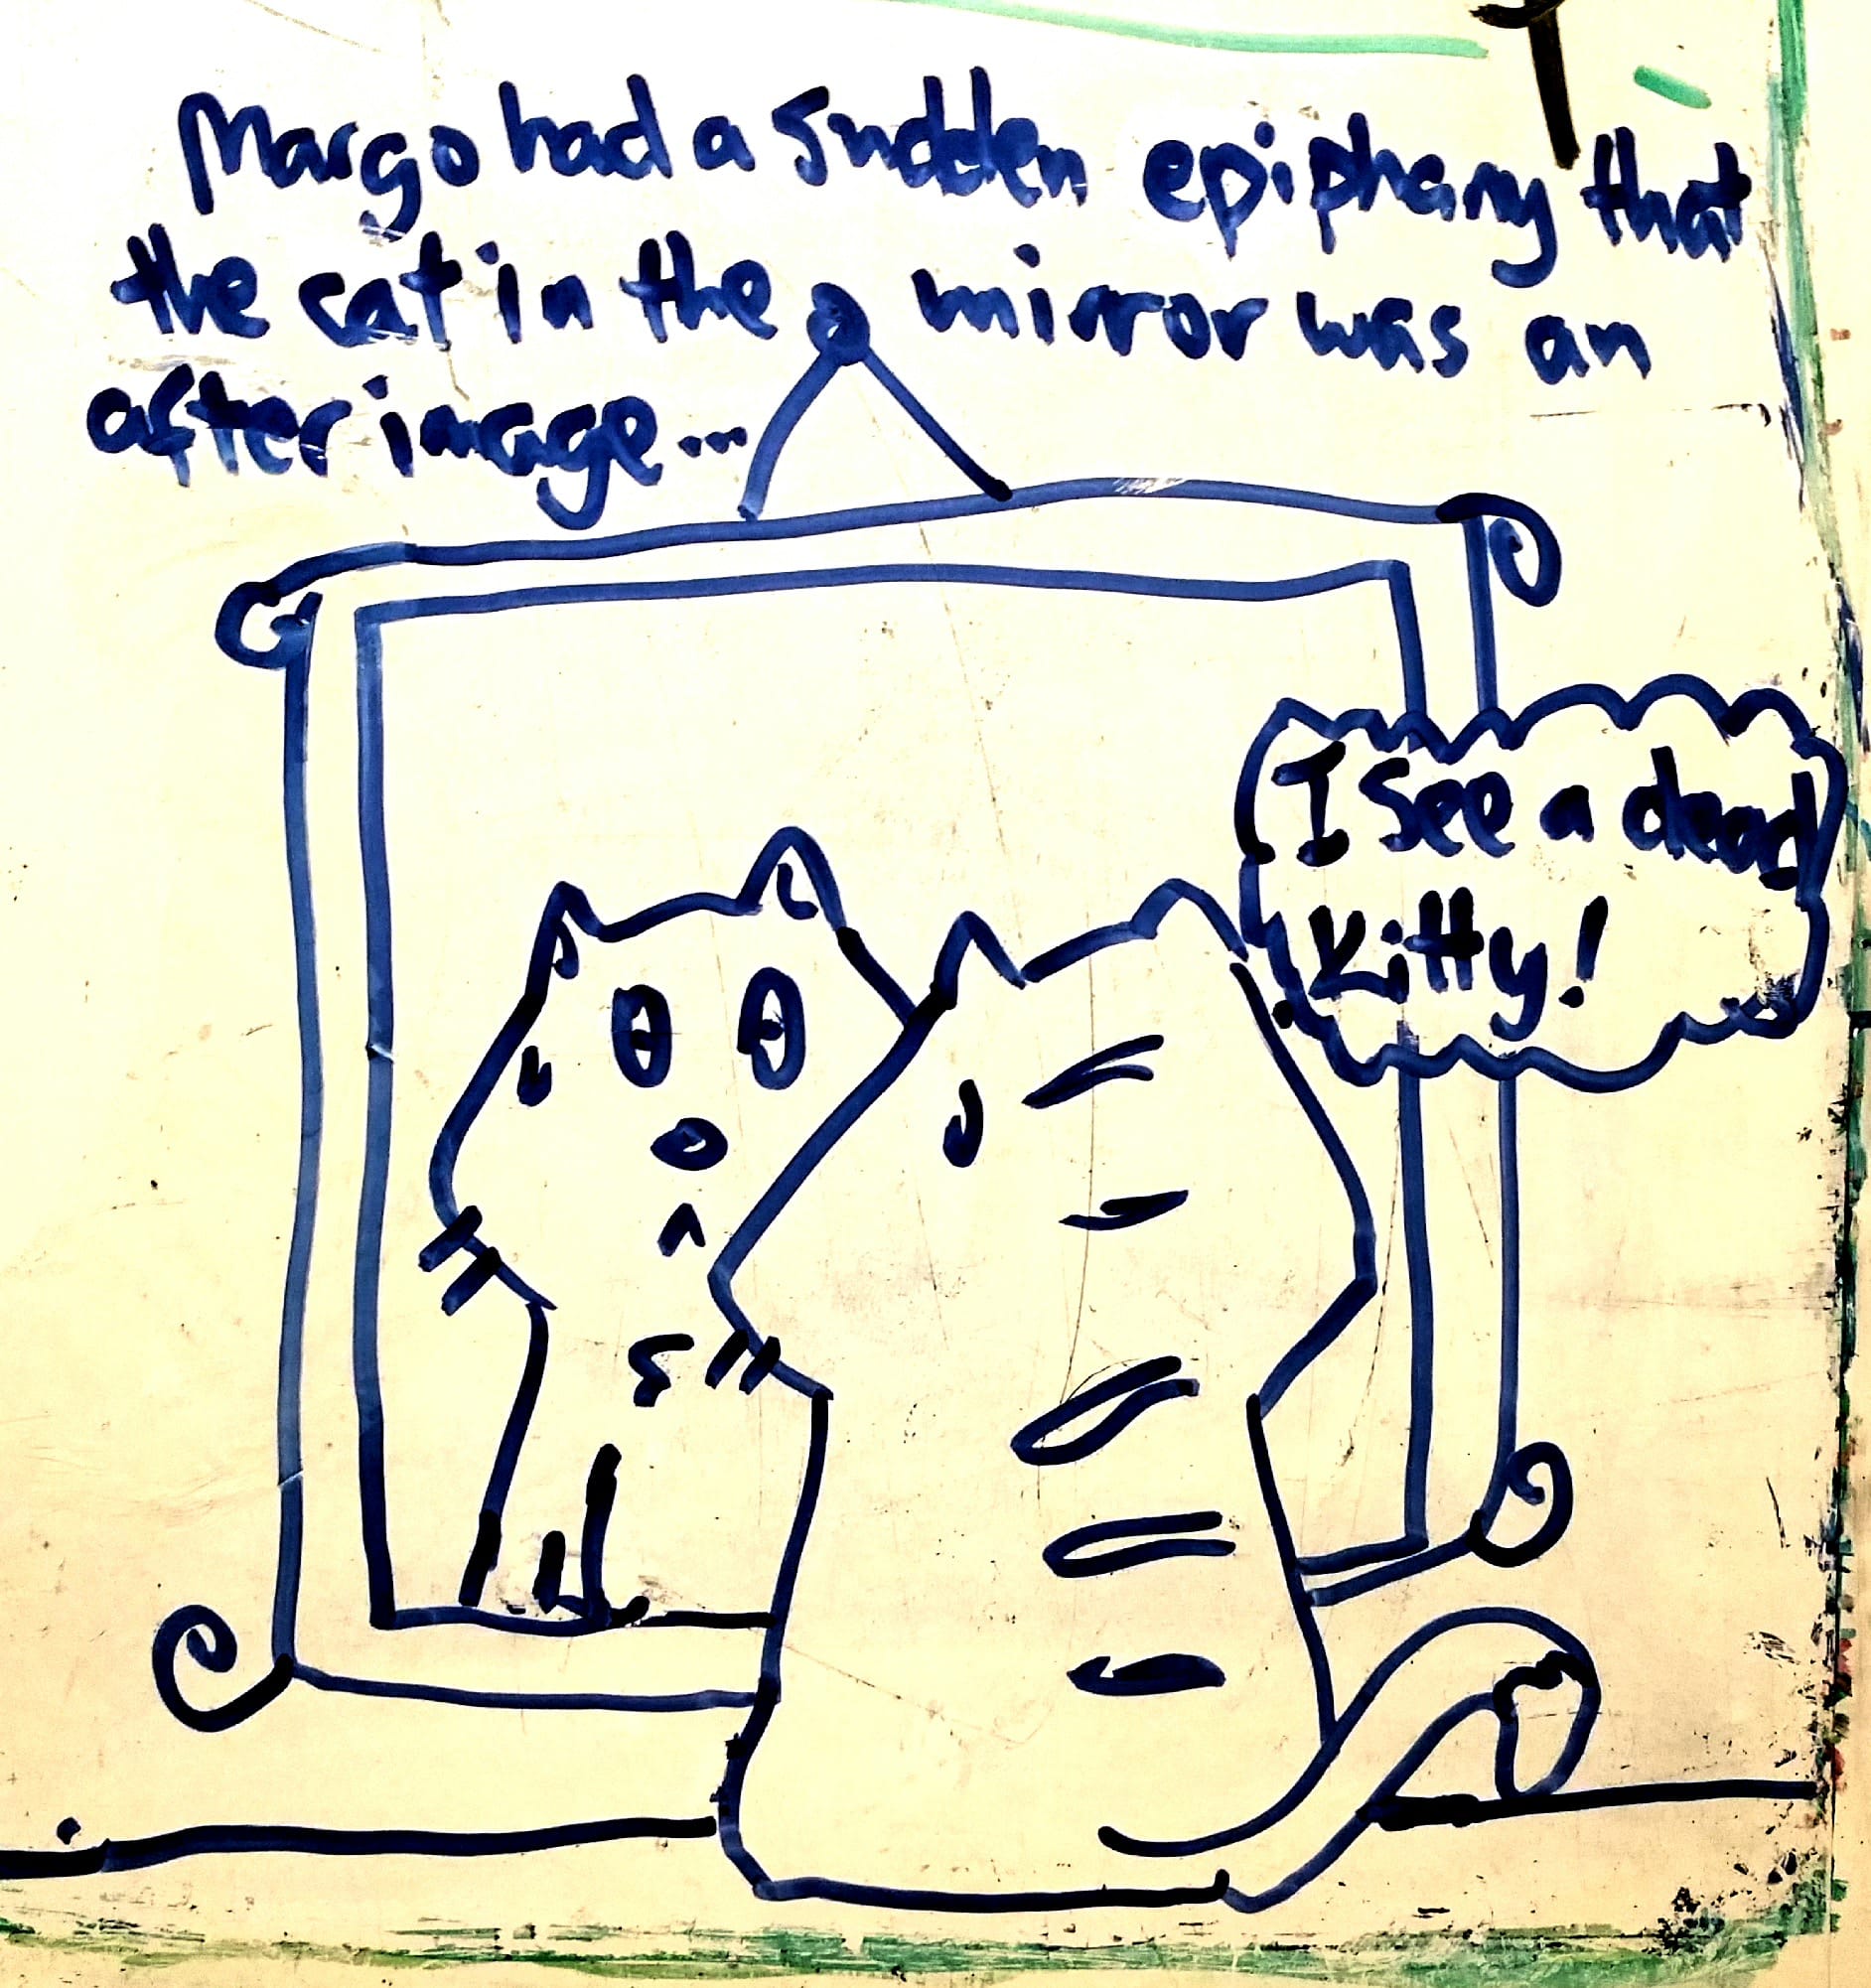 Margo had a sudden epiphany that
the cat in the mirror was an
after image...
I see a dead
Kitty!